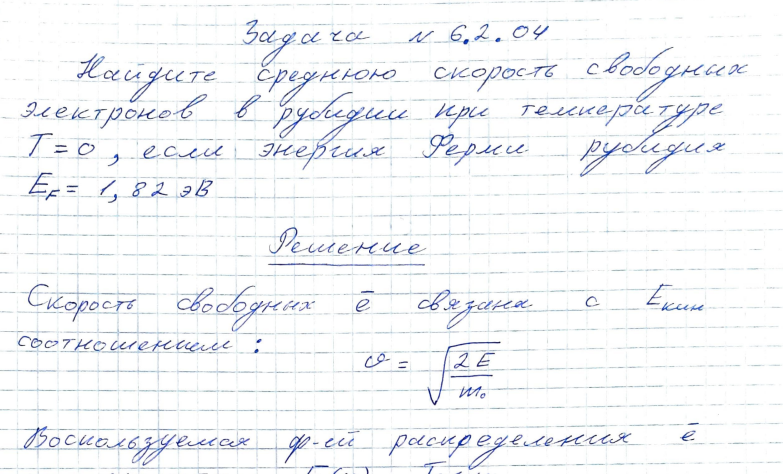 Задача № 6.2.04
Найдите среднюю скорость свободных
электронов в рубидии при температуре
T = 0, если энергия Ферми рубидия
E_F = 1,82 эВ
Решение
Скорость свободных ē связана с E_кин
соотношением:
v = √(2E/m₀)
Воспользуемся ф-ей распределения ē